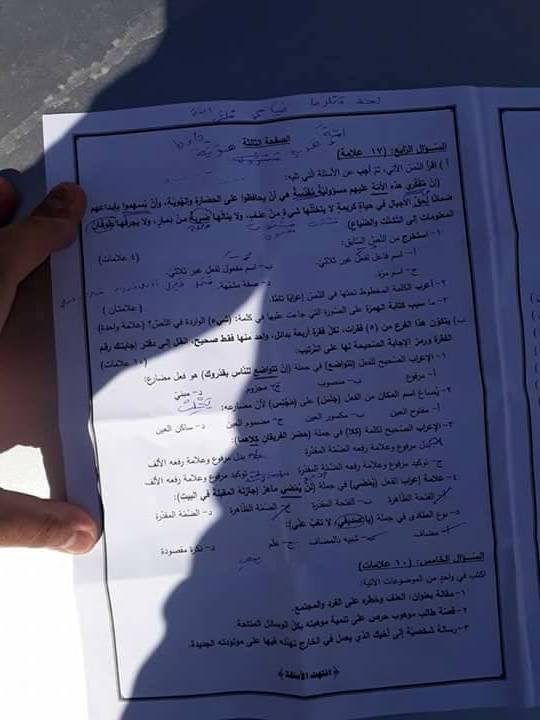 الصفحة الثالثة
السؤال الرابع: (١٧ علامة)
أ) اقرأ النص الآتي، ثم أجب عن الأسئلة التي تليه:
(إن مفكري هذه الأمة عليهم مسؤولية مقدسة هي أن يحافظوا على الحضارة والهوية، وأن يسهموا بإبداعهم
ضمانًا لحق الأجيال في حياة كريمة لا يتخللها شيء من عنف، ولا ينالها ضربة من دمار، ولا يجرفها طوفان
المعلومات إلى التشتت والضياع).
١- استخرج من النص السابق: (٤ علامات)
أ- اسم فاعل لفعل غير ثلاثي. ب- اسم مفعول لفعل غير ثلاثي.
ج- اسم مرة. د- صفة مشبهة.
٢- أعرب الكلمة المخطوط تحتها في النص إعرابًا تامًا. (علامتان)
٣- ما سبب كتابة الهمزة على الصورة التي جاءت عليها في كلمة: (شيء) الواردة في النص؟ (علامة واحدة)
ب) يتكون هذا الفرع من (٥) فقرات، لكل فقرة أربعة بدائل، واحد منها فقط صحيح، انقل إلى دفتر إجابتك رقم
الفقرة ورمز الإجابة الصحيحة لها على الترتيب: (١٠ علامات)
١- الإعراب الصحيح للفعل (تتواضع) في جملة (إن تتواضع للناس يقدروك) هو فعل مضارع:
أ- مرفوع ب- منصوب ج- مجزوم د- مبني
٢- يصاغ اسم المكان من الفعل (جلس) على (مجلس) لأن مضارعه:
أ- مفتوح العين ب- مكسور العين ج- مضموم العين د- ساكن العين
٣- الإعراب الصحيح لكلمة (كلا) في جملة (حضر الفريقان كلاهما):
أ- بدل مرفوع وعلامة رفعه الضمة المقدرة ب- بدل مرفوع وعلامة رفعه الألف
ج- توكيد مرفوع وعلامة رفعه الضمة المقدرة د- توكيد مرفوع وعلامة رفعه الألف
٤- علامة إعراب الفعل (يمضي) في جملة (لن يمضي ماهر إجازته المقبلة في البيت):
أ- الفتحة الظاهرة ب- الفتحة المقدرة ج- الضمة الظاهرة د- الضمة المقدرة
٥- نوع المنادى في جملة (يا صديقي، لا تغب عني):
أ- مضاف ب- شبيه بالمضاف ج- علم د- نكرة مقصودة
السؤال الخامس: (١٠ علامات)
اكتب في واحد من الموضوعات الآتية:
١- مقالة بعنوان: العنف وخطره على الفرد والمجتمع.
٢- قصة طالب موهوب حرص على تنمية موهبته بكل الوسائل المتاحة.
٣- رسالة شخصية إلى أخيك الذي يعمل في الخارج تهنئه فيها على مولودته الجديدة.
﴿انتهت الأسئلة﴾